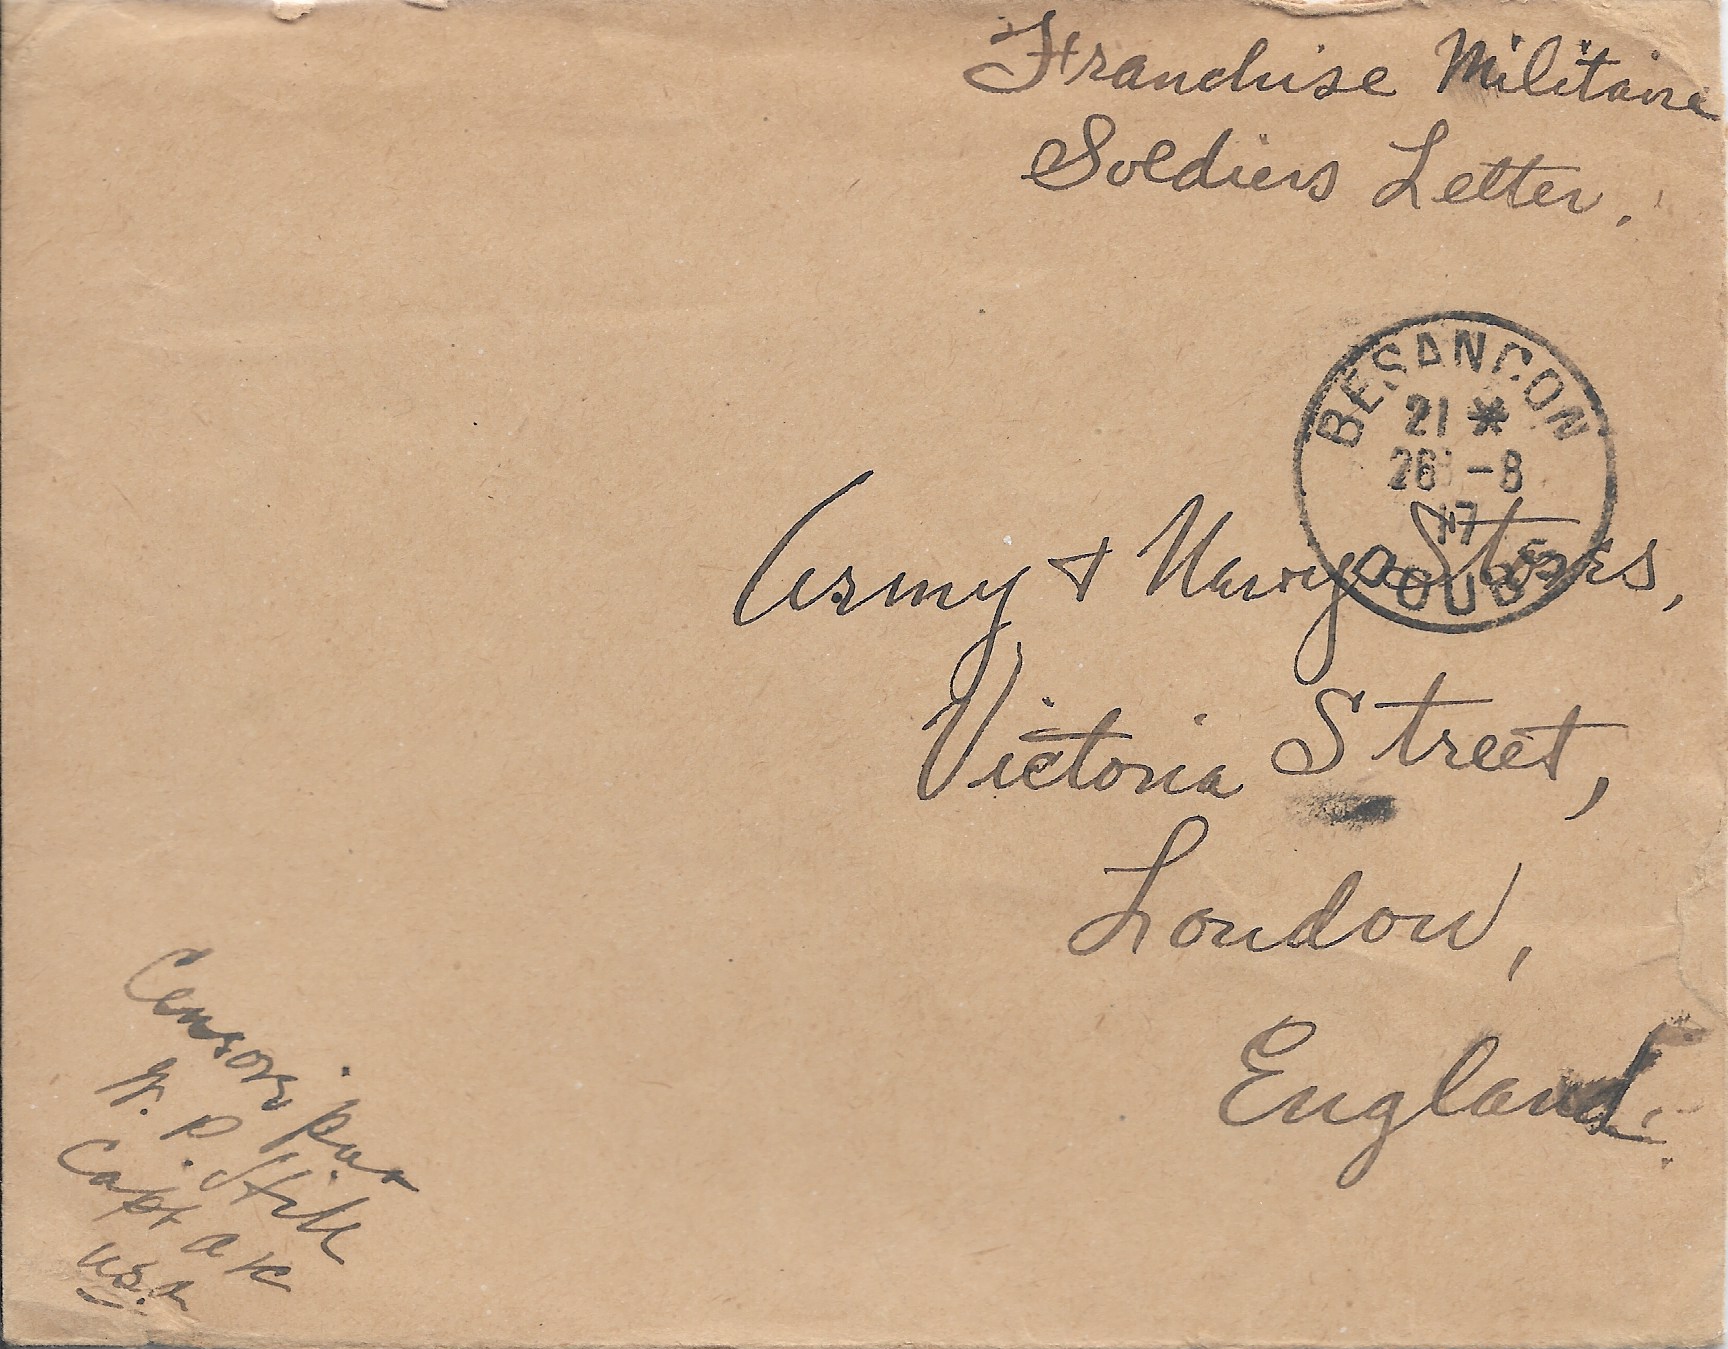 Franchise Militaire
Soldiers Letter.
BESANCON
21 *
26 -8
17
DOUBS
Army & Navy Stores,
Victoria Street,
London,
England.
Censore par
W. P. Hill
Capt a R
USA